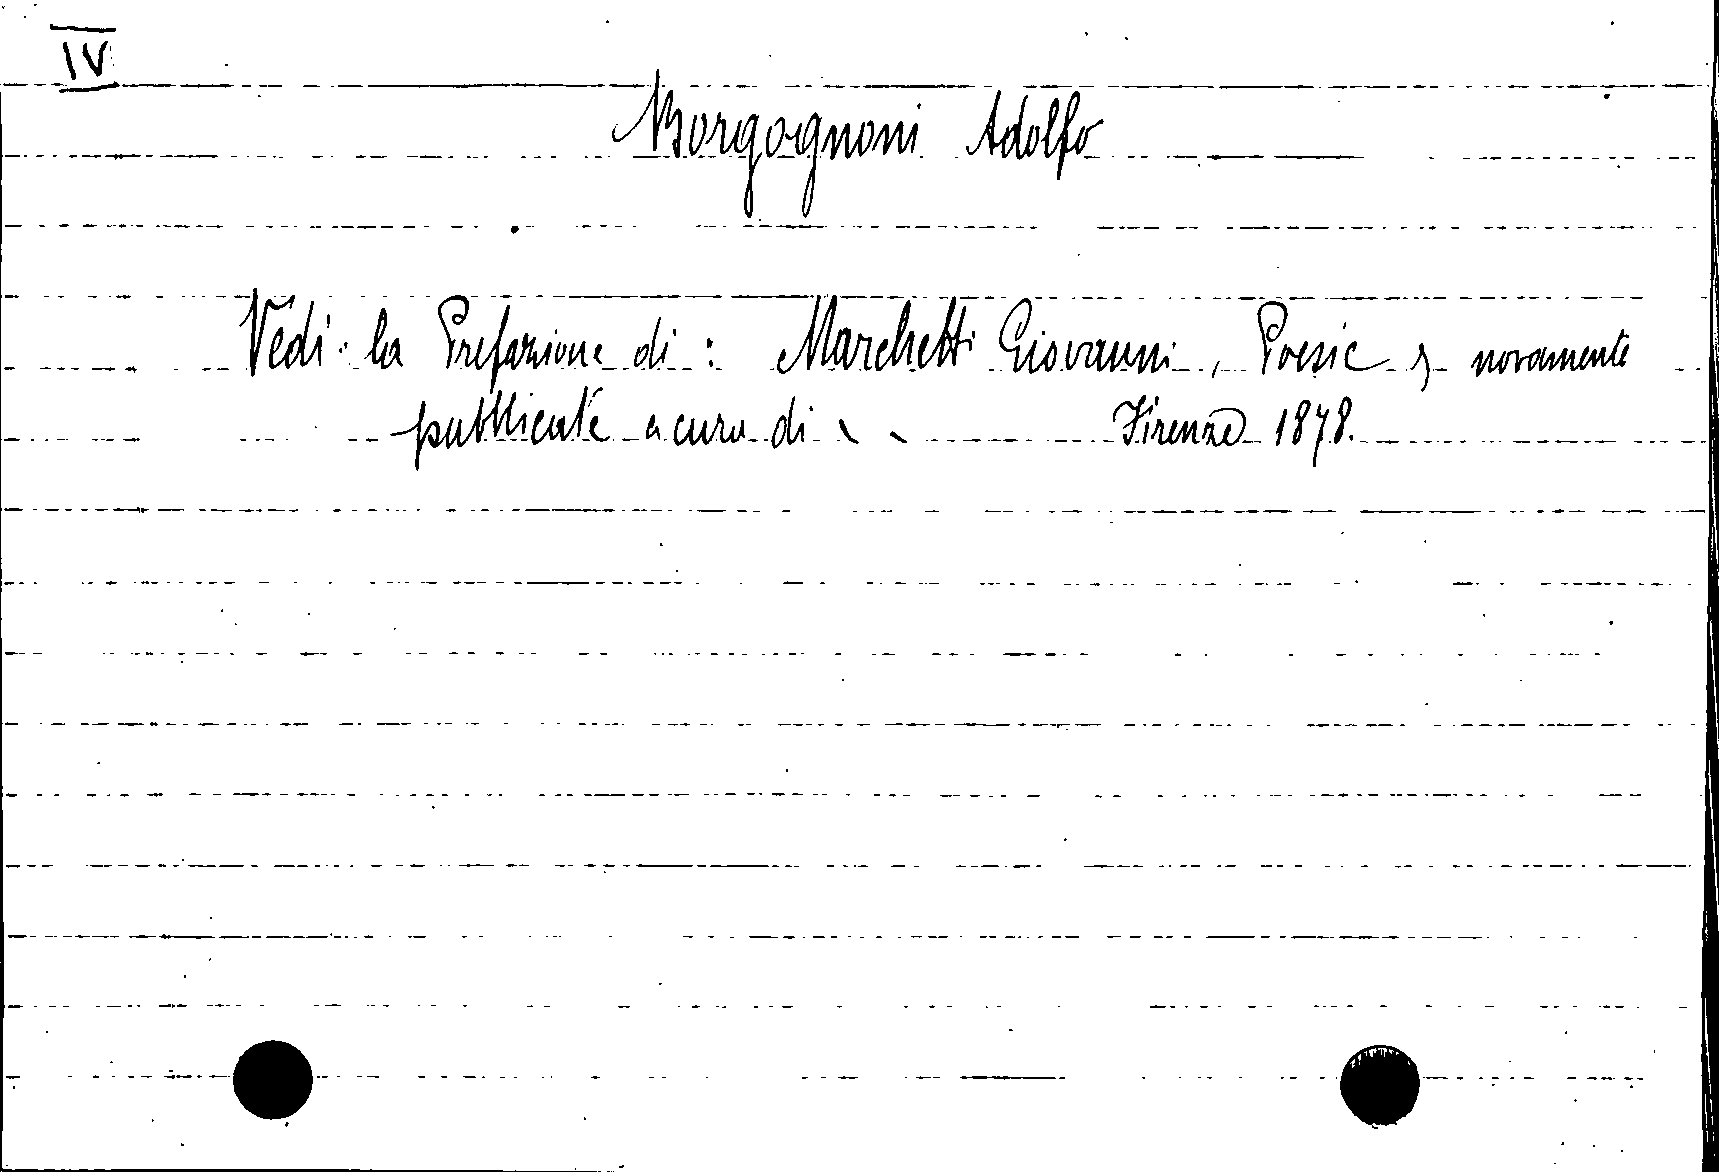 IV
Borgognoni Adolfo
Vedi: la Prefazione di: Marchetti Giovanni, Poesie, novamente
pubblicate a cura di . . Firenze 1878.